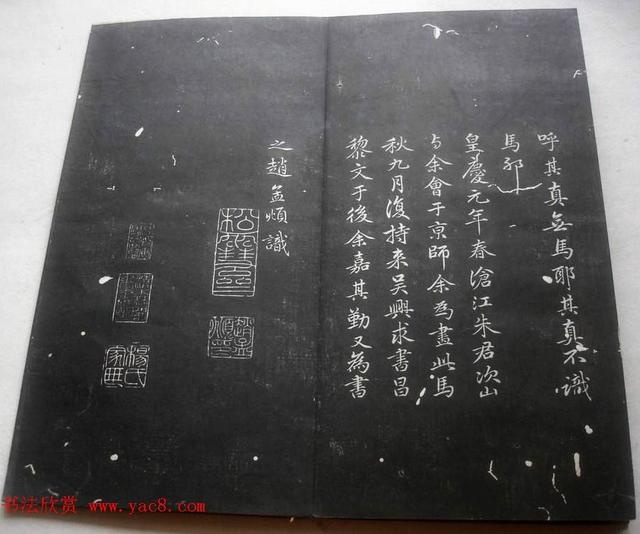 呼其真无馬耶其真不識
馬邪
皇慶元年春滄江朱君次山
与余會于京師余為畫此馬
秋九月復持来吳興求書昌
黎文于後余嘉其勤又為書
之趙孟頫識
松雪齋
趙孟頫印
楊氏家典
书法欣赏 www.yac8.com